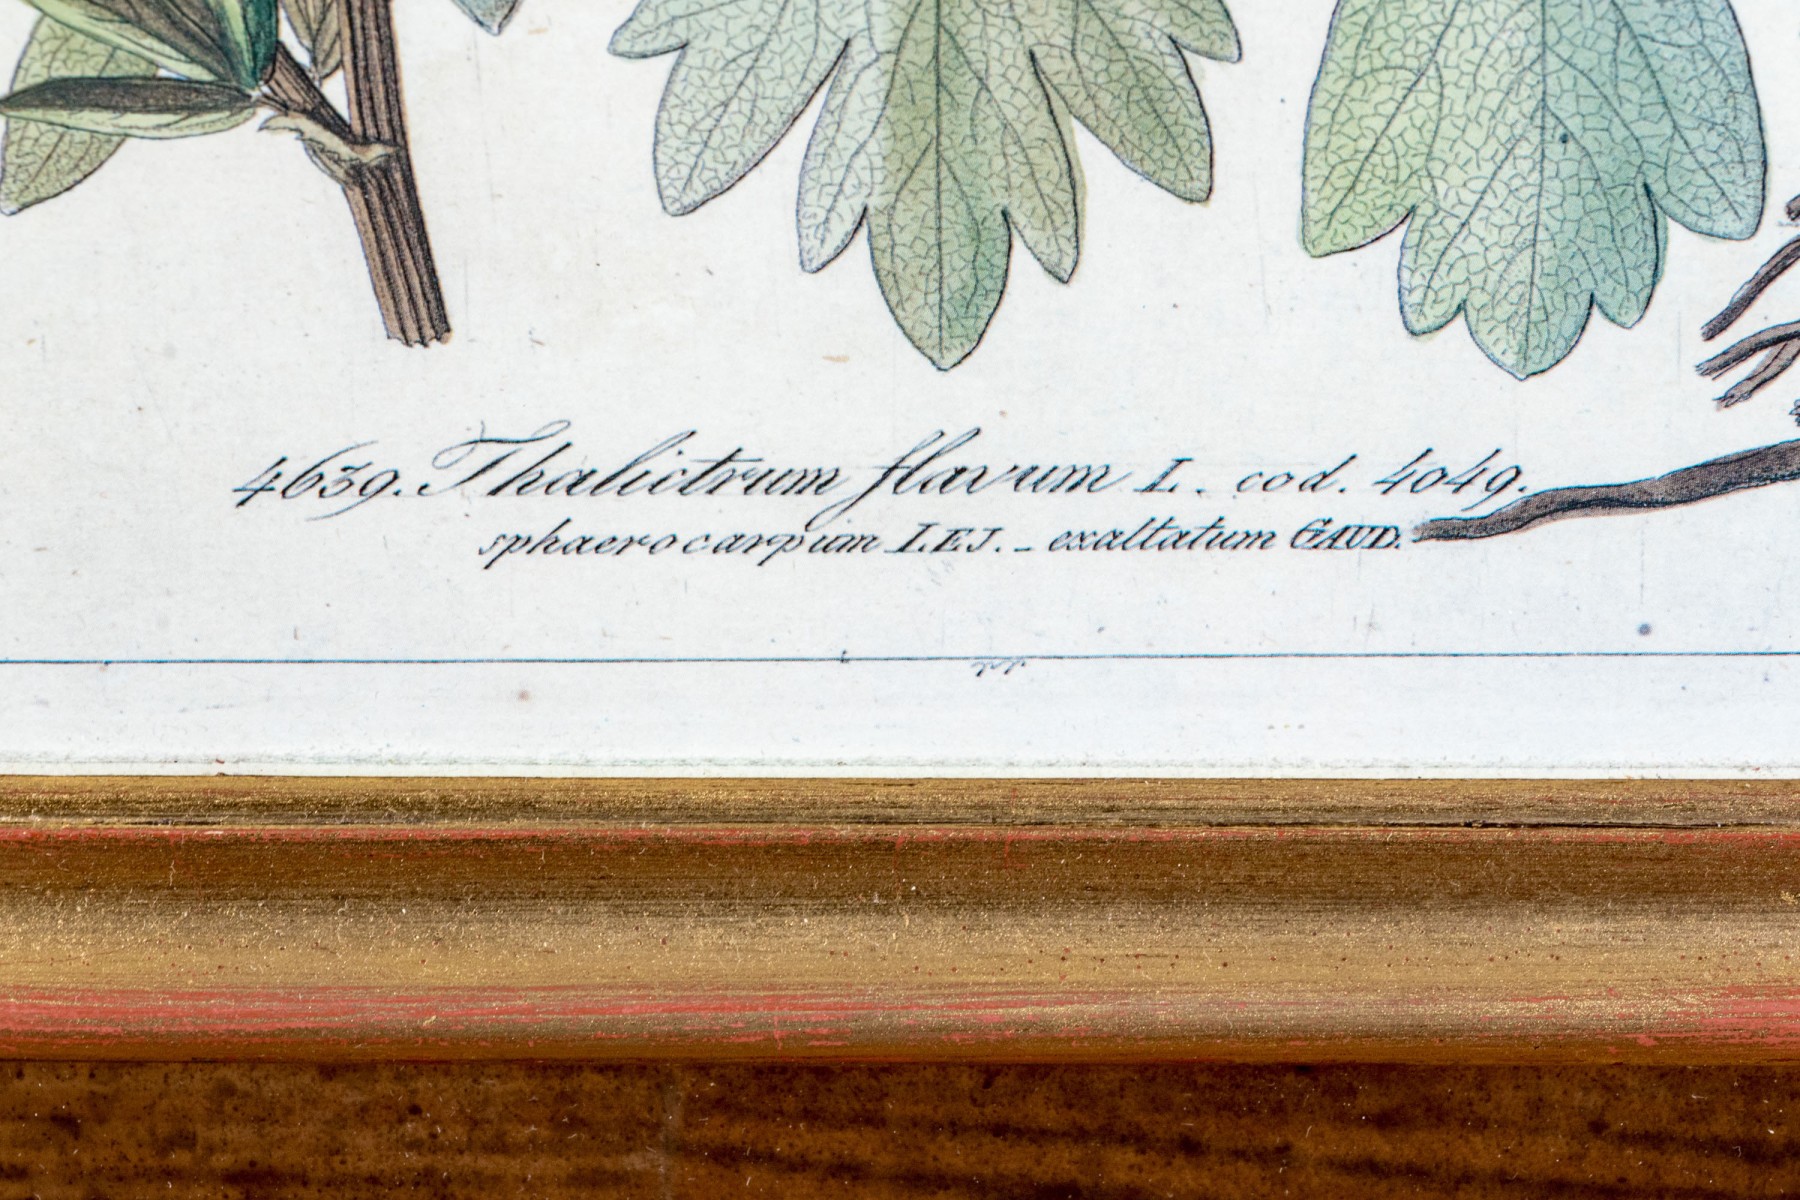 4639. Thalictrum flavum L. cod. 4049.
sphaerocarpum LEJ. - exaltatum GAUD.